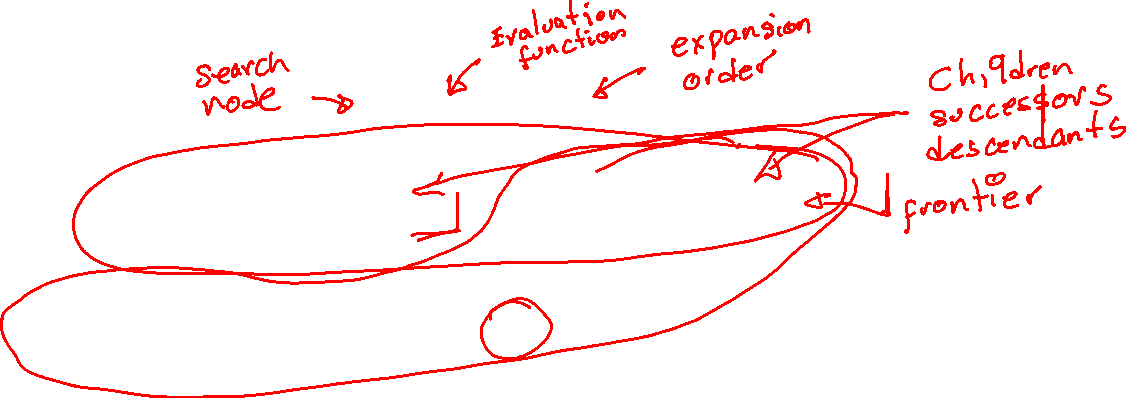 search
node
Evaluation
function
expansion
order
Children
successors
descendants
frontier